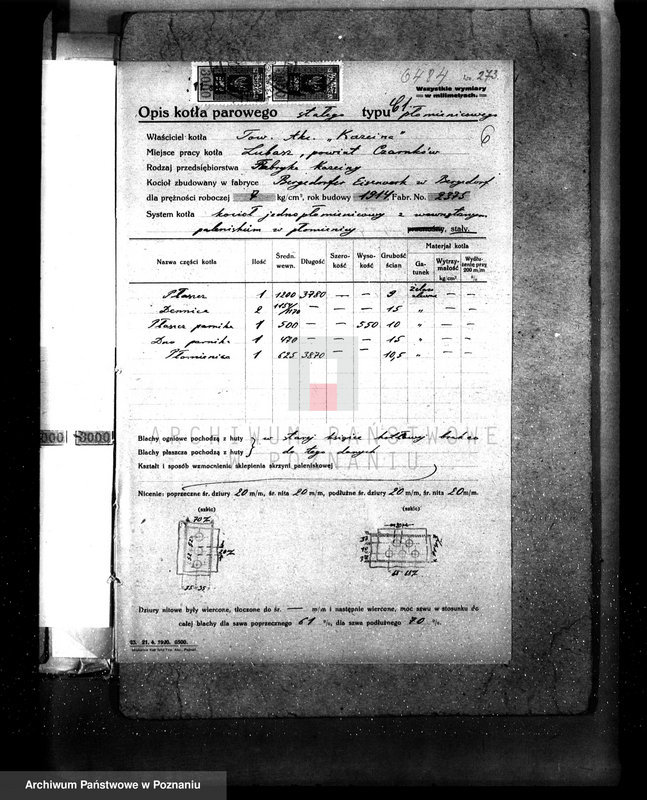 6484 No. 273
Wszystkie wymiary
w milimetrach.
Opis kotła parowego stałego typu płomienicowego
6
Właściciel kotła Tow. Akc. „Kazeina"
Miejsce pracy kotła Lubasz, powiat Czarnków
Rodzaj przedsiębiorstwa Fabryka Kazeiny
Kocioł zbudowany w fabryce Bergedorfer Eisenwerk w Bergedorf
dla prężności roboczej 7 kg/cm², rok budowy 1914 Fabr. No. 2375
System kotła kocioł jednopłomienicowy z wewnętrznym
paleniskiem w płomienicy stały.
Nazwa części kotła Ilość Średn. wewn. Długość Szerokość Wysokość Grubość ścian Materjał kotła
Gatunek Wytrzymałość kg/cm² Wydłużenie przy 200 m/m %
Płaszcz 1 1200 3780 — — 9 — —
Dennica 2 — — — 15 „ — —
Płaszcz parnika 1 500 — — 550 10 „ — —
Dno parnika 1 470 — — 15 „ — —
Płomienica 1 625 3870 — — 10,5 „ — —
ARCHIWUM PAŃSTWOWE
W POZNANIU
Blachy ogniowe pochodzą z huty } w starej książce kotłowej brak co
Blachy płaszcza pochodzą z huty } do tego danych
Kształt i sposób wzmocnienia sklepienia skrzyni paleniskowej
Nicenie: poprzeczne śr. dziury 20 m/m, śr. nita 20 m/m, podłużne śr. dziury 20 m/m, śr. nita 20 m/m.
(szkic) (szkic)
Dziury nitowe były wiercone, tłoczone do śr. — m/m i następnie wiercone, moc szwu w stosunku do
całej blachy dla szwa poprzecznego 61 %, dla szwa podłużnego 70 %.
63. 21. 4. 1920. 6500.
Archiwum Państwowe w Poznaniu